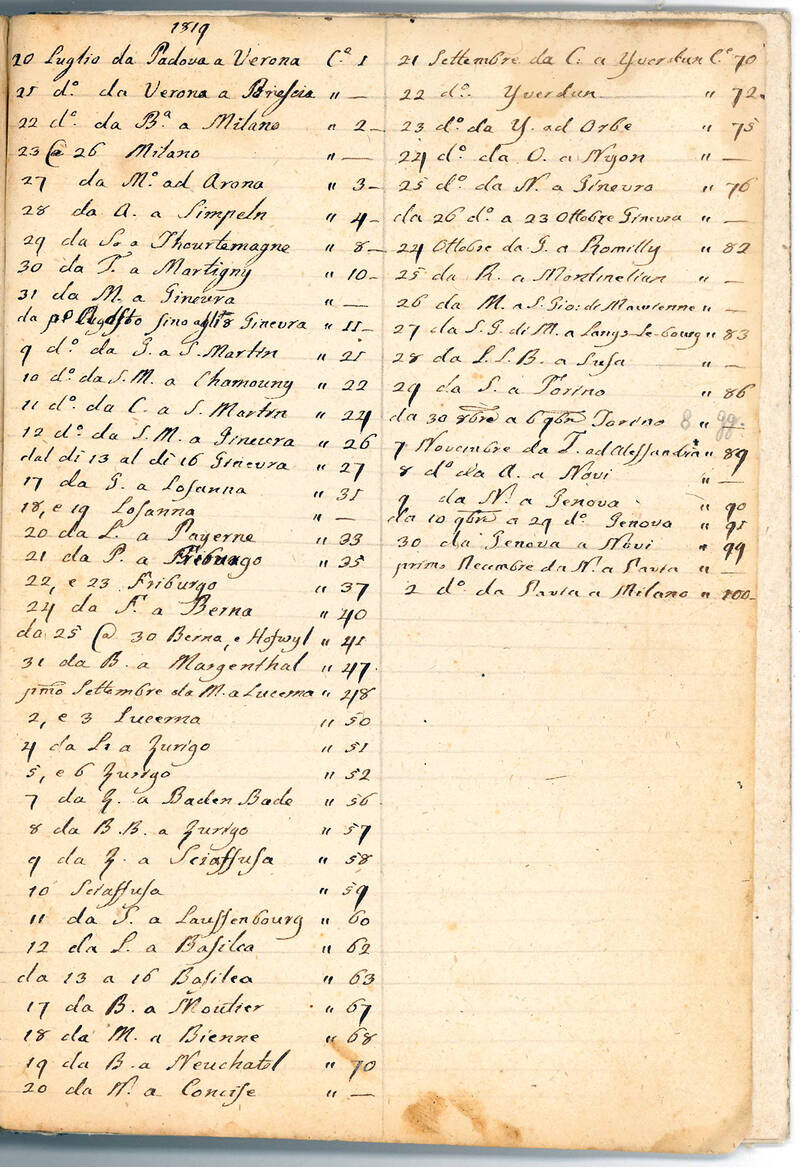 1819
20 Luglio da Padova a Verona C.º 1
21 d.º da Verona a Brescia " —
22 d.º da B.ª a Milano " 2 —
23 @ 26 Milano " —
27 da M.º ad Arona " 3 —
28 da A. a Simpeln " 4 —
29 da S. a Thourtemagne " 8 —
30 da T. a Martigny " 10 —
31 da M. a Ginevra " —
da p.º Agosto sino agli 8 Ginevra " 11 —
9 d.º da G. a S. Martin " 21
10 d.º da S. M. a Chamouny " 22
11 d.º da C. a S. Martin " 24
12 d.º da S. M. a Ginevra " 26
dal di 13 al di 16 Ginevra " 27
17 da G. a Losanna " 31
18, e 19 Losanna " —
20 da L. a Payerne " 33
21 da P. a Friburgo " 35
22, e 23 Friburgo " 37
24 da F. a Berna " 40
da 25 @ 30 Berna, e Hofwyl " 41
31 da B. a Margenthal " 47
pmo Settembre da M. a Lucerna " 48
2, e 3 Lucerna " 50
4 da L. a Zurigo " 51
5, e 6 Zurigo " 52
7 da Z. a Baden Bade " 56
8 da B. B. a Zurigo " 57
9 da Z. a Sciaffusa " 58
10 Sciaffusa " 59
11 da S. a Lauffenbourg " 60
12 da L. a Basilea " 62
da 13 a 16 Basilea " 63
17 da B. a Moutier " 67
18 da M. a Bienne " 68
19 da B. a Neuchatel " 70
20 da N. a Concise " —
21 Settembre da C. a Yverdun C.º 70
22 d.º Yverdun " 72
23 d.º da Y. ad Orbe " 75
24 d.º da O. a Nyon " —
25 d.º da N. a Ginevra " 76
da 26 d.º a 23 Ottobre Ginevra " —
24 Ottobre da G. a Romilly " 82
25 da R. a Montmelian " —
26 da M. a S. Gio: di Maurienne " —
27 da S. G. di M. a Lans-le-bourg " 83
28 da L. L. B. a Susa " —
29 da S. a Torino " 86
da 30 8bre a 6 9bre Torino 8 " 99.
7 Novembre da T. ad Alessandria " 89
8 d.º da A. a Novi " —
9 da N. a Genova " 90
da 10 9bre a 29 d.º Genova " 91
30 da Genova a Novi " 99
primo Decembre da N. a Pavia " —
2 d.º da Pavia a Milano " 100 —